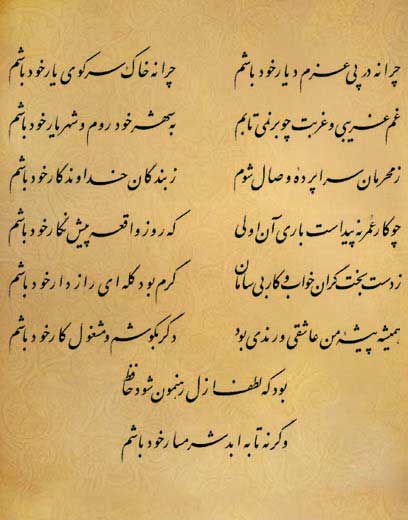 چرا نه در پی عزم دیار خود باشم چرا نه خاک سر کوی یار خود باشم
غم غریبی و غربت چو بر نمی تابم به شهر خود روم و شهریار خود باشم
ز محرمان سراپرده وصال شوم ز بندگان خداوندگار خود باشم
چو کار عمر نه پیداست باری آن اولی که روز واقعه پیش نگار خود باشم
ز دست بخت گران خواب و کار بی سامان گرم بود گله ای رازدار خود باشم
همیشه پیشه من عاشقی و رندی بود دگر بکوشم و مشغول کار خود باشم
بود که لطف ازل رهنمون شود حافظ
وگرنه تا به ابد شرمسار خود باشم